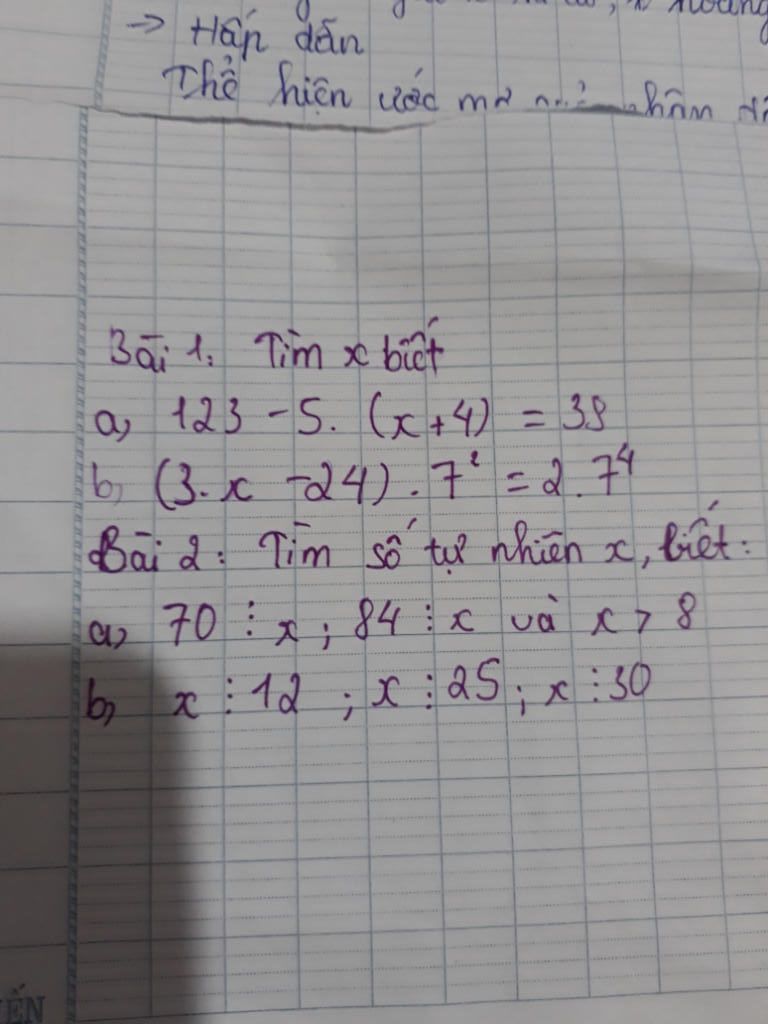 → Hấp dẫn
Thể hiện ước mơ nhân
Bài 1: Tìm x biết
a, 123 - 5. (x+4) = 38
b, (3.x -24) . 7² = 2.7⁴
Bài 2: Tìm số tự nhiên x, biết:
a, 70 ⋮ x ; 84 ⋮ x và x > 8
b, x ⋮ 12 ; x ⋮ 25 ; x ⋮ 30
ẾN